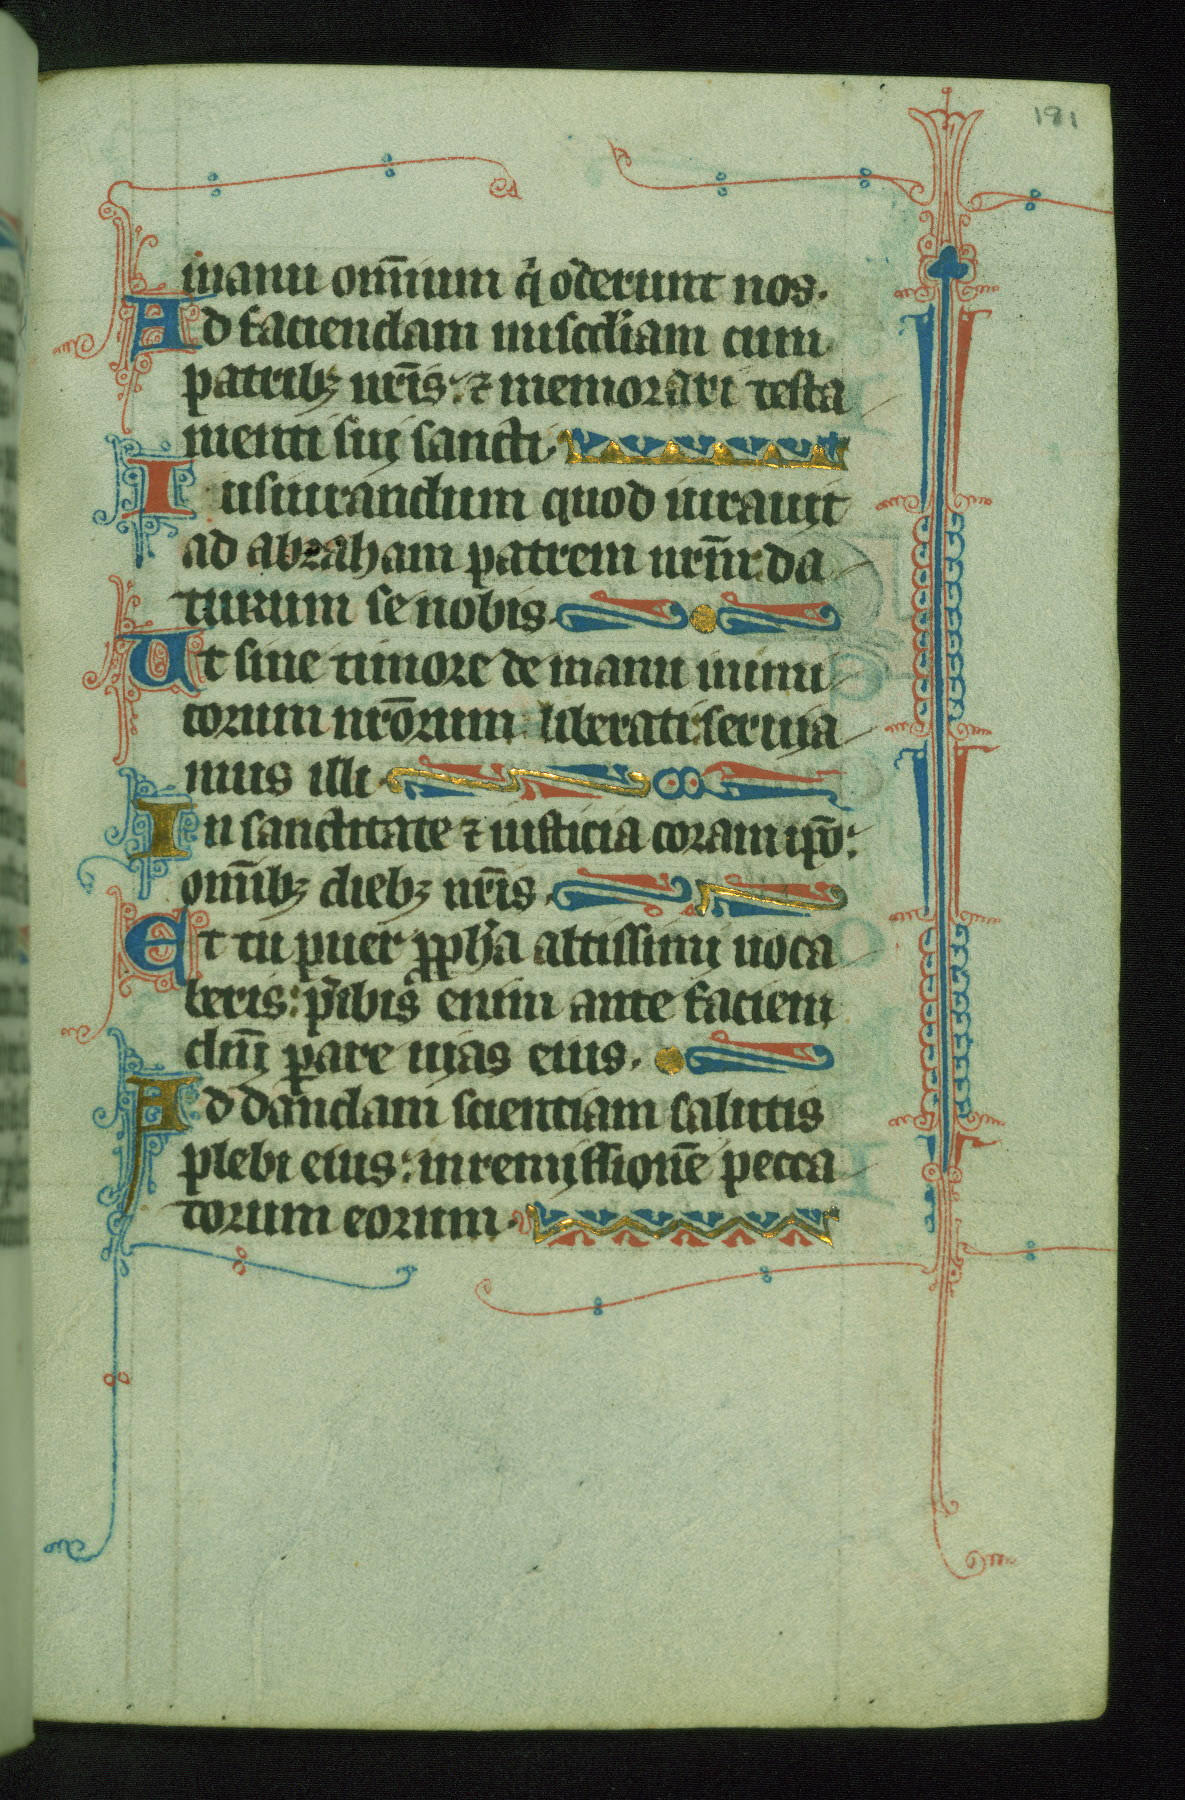 181
manu om̄ium q̇ oderunt nos.
Ad faciendam miscd̄iam cum
patribȝ nr̄is: ⁊ memorari testa
menti sui sancti.
Iusiurandum quod iurauit
ad abraham patrem nr̄m: da
turum se nobis.
Ut sine timore de manu inimi
corum nr̄orum liberati: seruia
mus illi.
In sanctitate ⁊ iusticia coram ip̄o:
om̄ibȝ diebȝ nr̄is.
Et tu puer ꝓpħa altissimi uoca
beris: p̄ibis enim ante faciem
dn̄i ꝑare uias eius.
Ad dandam scientiam salutis
plebi eius: in remissionē pecca
torum eorum.